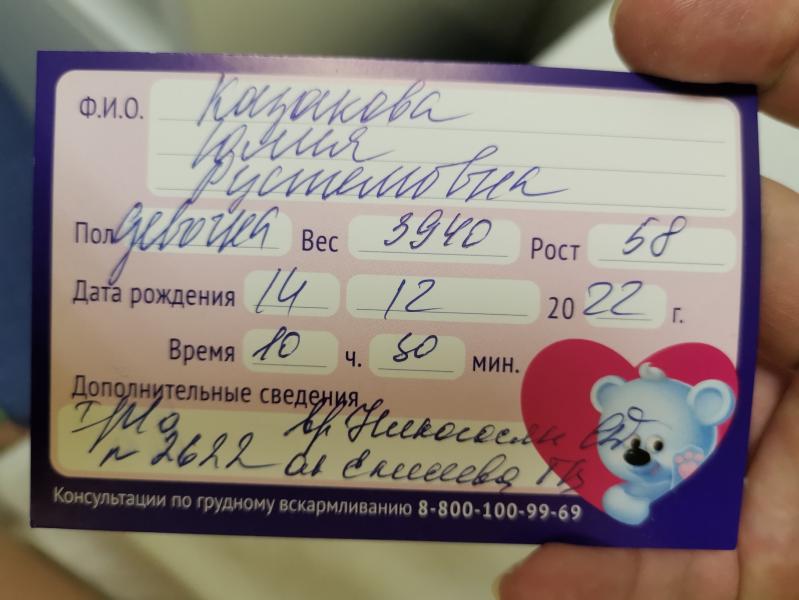 Ф.И.О. Казакова
Юлия
Рустемовна
Пол девочка Вес 3940 Рост 58
Дата рождения 14 12 2022 г.
Время 10 ч. 50 мин.
Дополнительные сведения
вр Никогосян
N 2622 ак Елисеева
Консультации по грудному вскармливанию 8-800-100-99-69